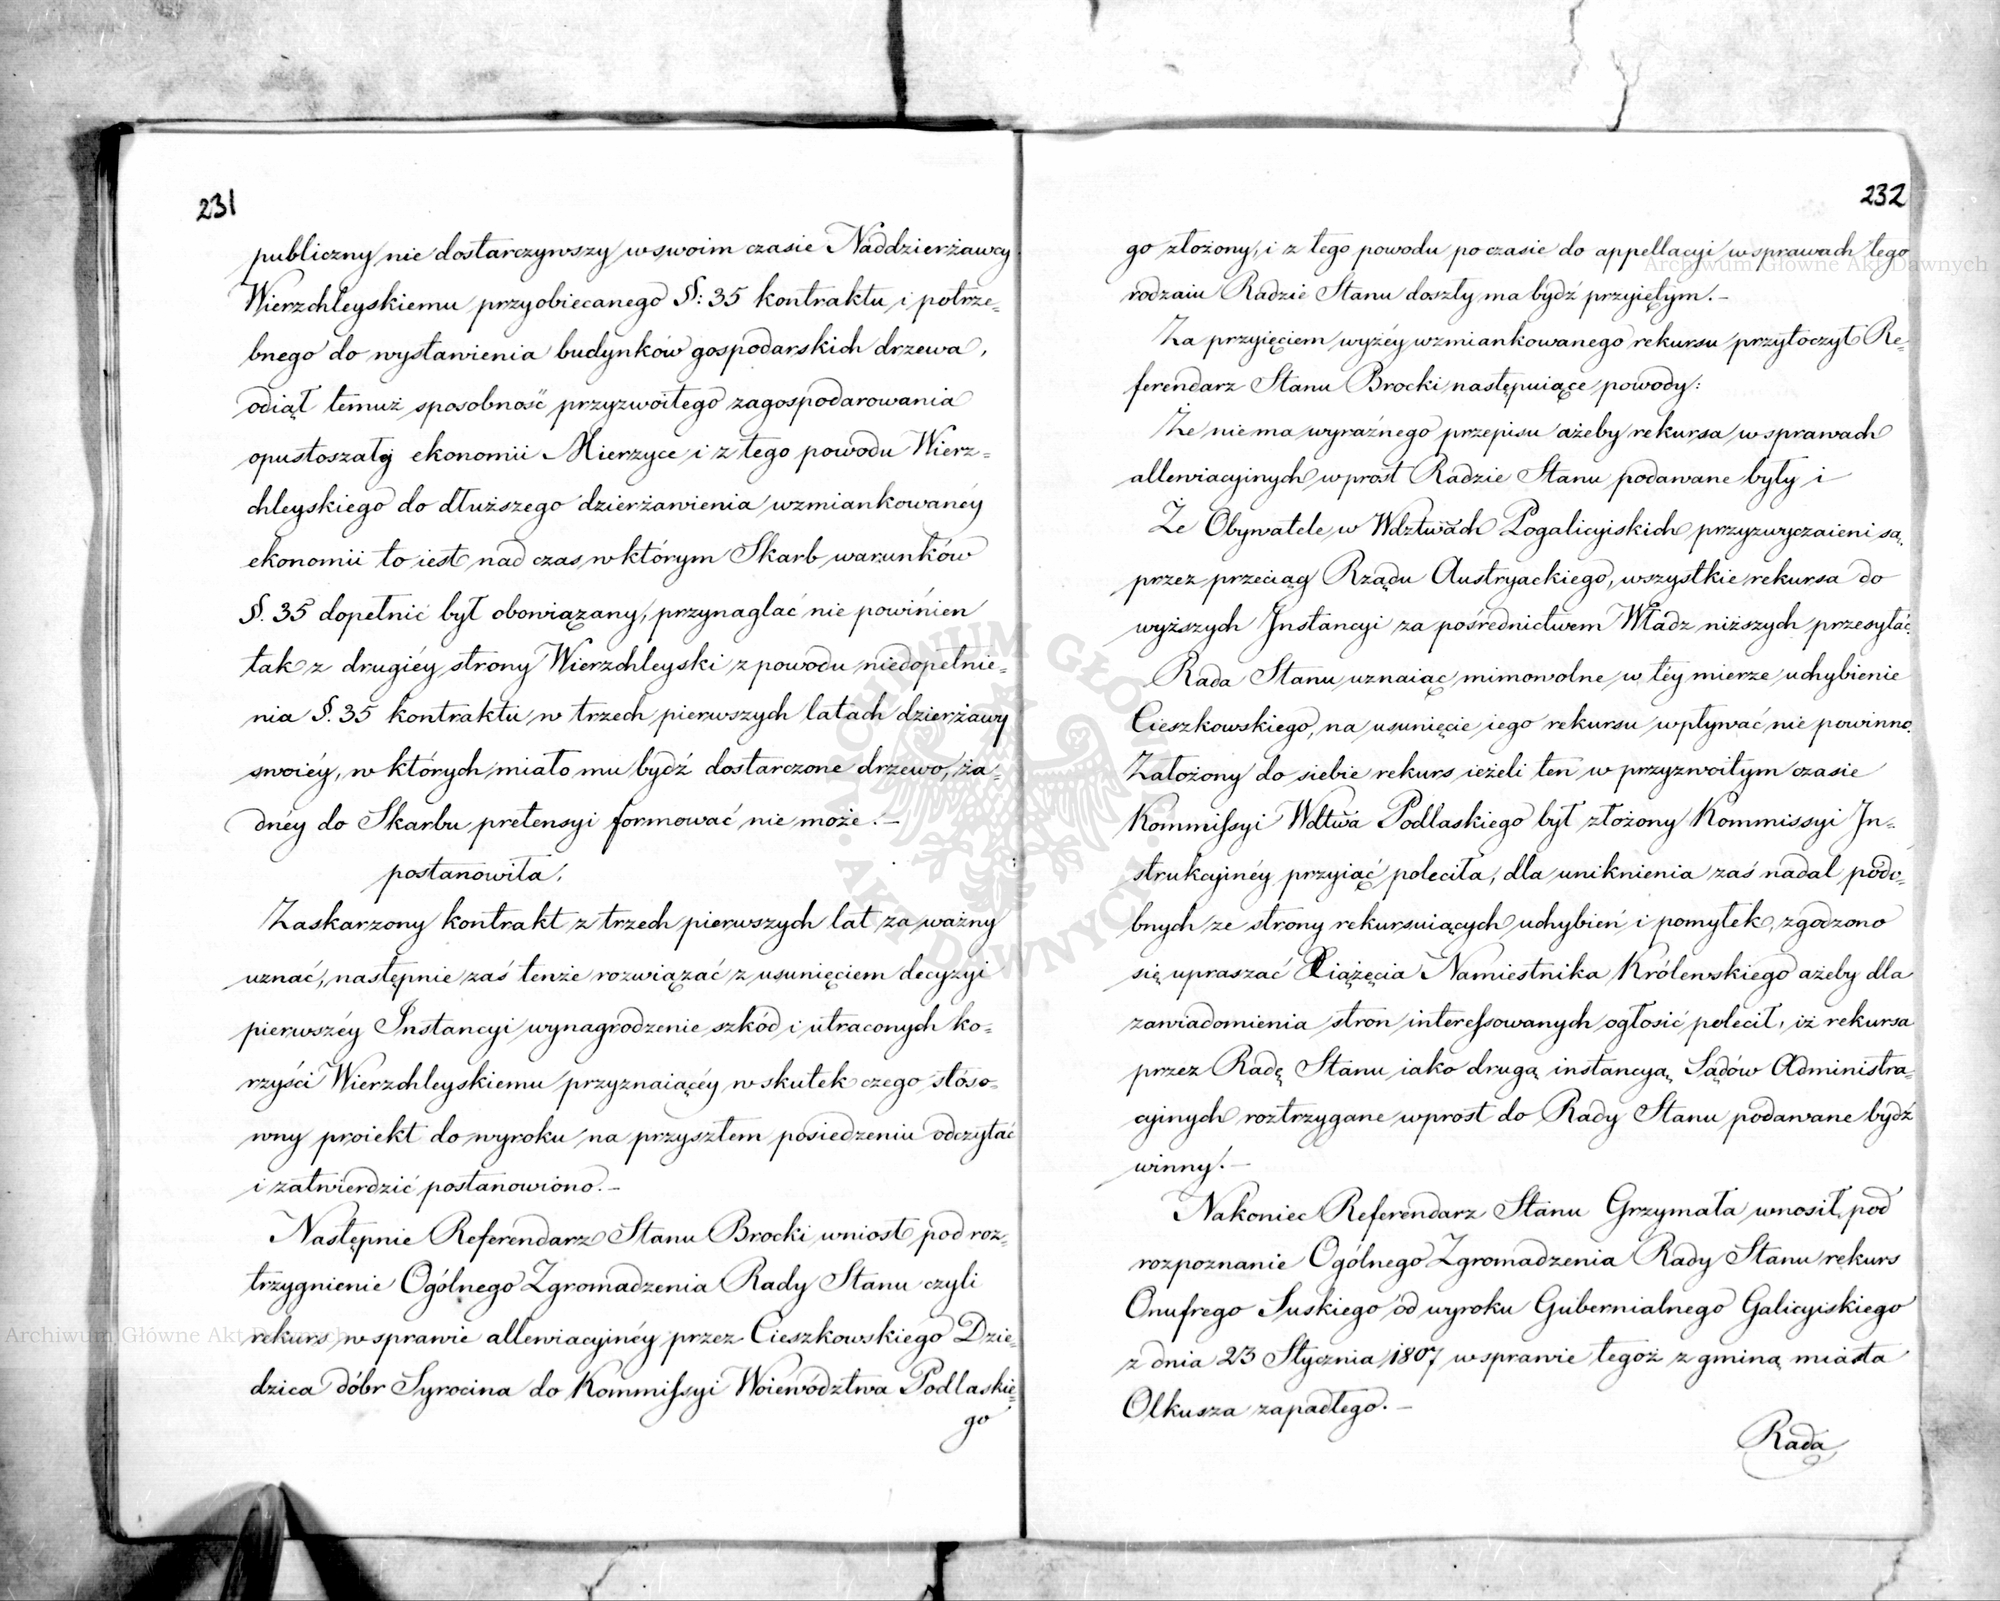 231
publiczny nie dostarczywszy w swoim czasie Naddzierżawcy
Wierzchleyskiemu przyobiecanego §: 35 kontraktu i potrze=
bnego do wystawienia budynków gospodarskich drzewa,
odiął temuż sposobność przyzwoitego zagospodarowania
opustoszałey ekonomii Mierzyce i z tego powodu Wierz=
chleyskiego do dłuższego dzierżawienia wzmiankowanéy
ekonomii to iest nad czas w którym Skarb warunków
§. 35 dopełnić był obowiązany, przynaglać nie powinien
tak z drugiéy strony Wierzchleyski z powodu niedopełnie=
nia §. 35 kontraktu w trzech pierwszych latach dzierżawy
swoiéy, w których miało mu bydź dostarczone drzewo, ża=
dnéy do Skarbu pretensyi formować nie może. —
postanowiła,
Zaskarzony kontrakt z trzech pierwszych lat za ważny
uznać, następnie zaś tenże rozwiązać z usunięciem decyzyi
pierwszéy Instancyi wynagrodzenie szkód i utraconych ko=
rzyści Wierzchleyskiemu przyznaiącéy w skutek czego stóso=
wny proiekt do wyroku na przyszłem posiedzeniu odczytać
i zatwierdzić postanowiono. —
Następnie Referendarz Stanu Brocki wniosł pod roz=
trzygnienie Ogólnego Zgromadzenia Rady Stanu czyli
rekurs w sprawie allewiacyinéy przez Cieszkowskiego Dzie=
dzica dóbr Syrocina do Kommissyi Woiewództwa Podlaskie=
go
232
go złożony, i z tego powodu po czasie do appellacyi w sprawach tego
rodzaiu Radzie Stanu doszły ma bydź przyiętym. —
Za przyięciem wyżéy wzmiankowanego rekursu przytoczył Re=
ferendarz Stanu Brocki następuiące powody:
Że niema wyraźnego przepisu ażeby rekursa w sprawach
allewiacyinych wprost Radzie Stanu podawane były i
Że Obywatele w Wdztwach Pogalicyiskich przyzwyczaieni są,
przez przeciąg Rządu Austryackiego, wszystkie rekursa do
wyższych Instancyi za pośrednictwem Władz niższych przesyłać.
Rada Stanu uznaiąc mimowolne w téy mierze uchybienie
Cieszkowskiego, na usunięcie iego rekursu wpływać nie powinno.
Założony do siebie rekurs ieżeli ten w przyzwoitym czasie
Kommissyi Wdtwa Podlaskiego był złożony Kommissyi In=
strukcyinéy przyiąć poleciła, dla uniknienia zaś nadal podo=
bnych ze strony rekursuiących uchybień i pomyłek, zgodzono
się upraszać Xiążęcia Namiestnika Królewskiego ażeby dla
zawiadomienia stron interessowanych ogłosić polecił, iż rekursa
przez Radę Stanu iako drugą instancyą Sądów Administra=
cyinych roztrzygane wprost do Rady Stanu podawane bydź
winny. —
Nakoniec Referendarz Stanu Grzymała wnosił pod
rozpoznanie Ogólnego Zgromadzenia Rady Stanu rekurs
Onufrego Suskiego od wyroku Gubernialnego Galicyiskiego
z dnia 23 Stycznia 1807 w sprawie tegoż z gminą miasta
Olkusza zapadłego. —
Rada
Archiwum Główne Akt Dawnych
Archiwum Główne Akt Dawnych
ARCHIWUM GŁÓWNE AKT DAWNYCH